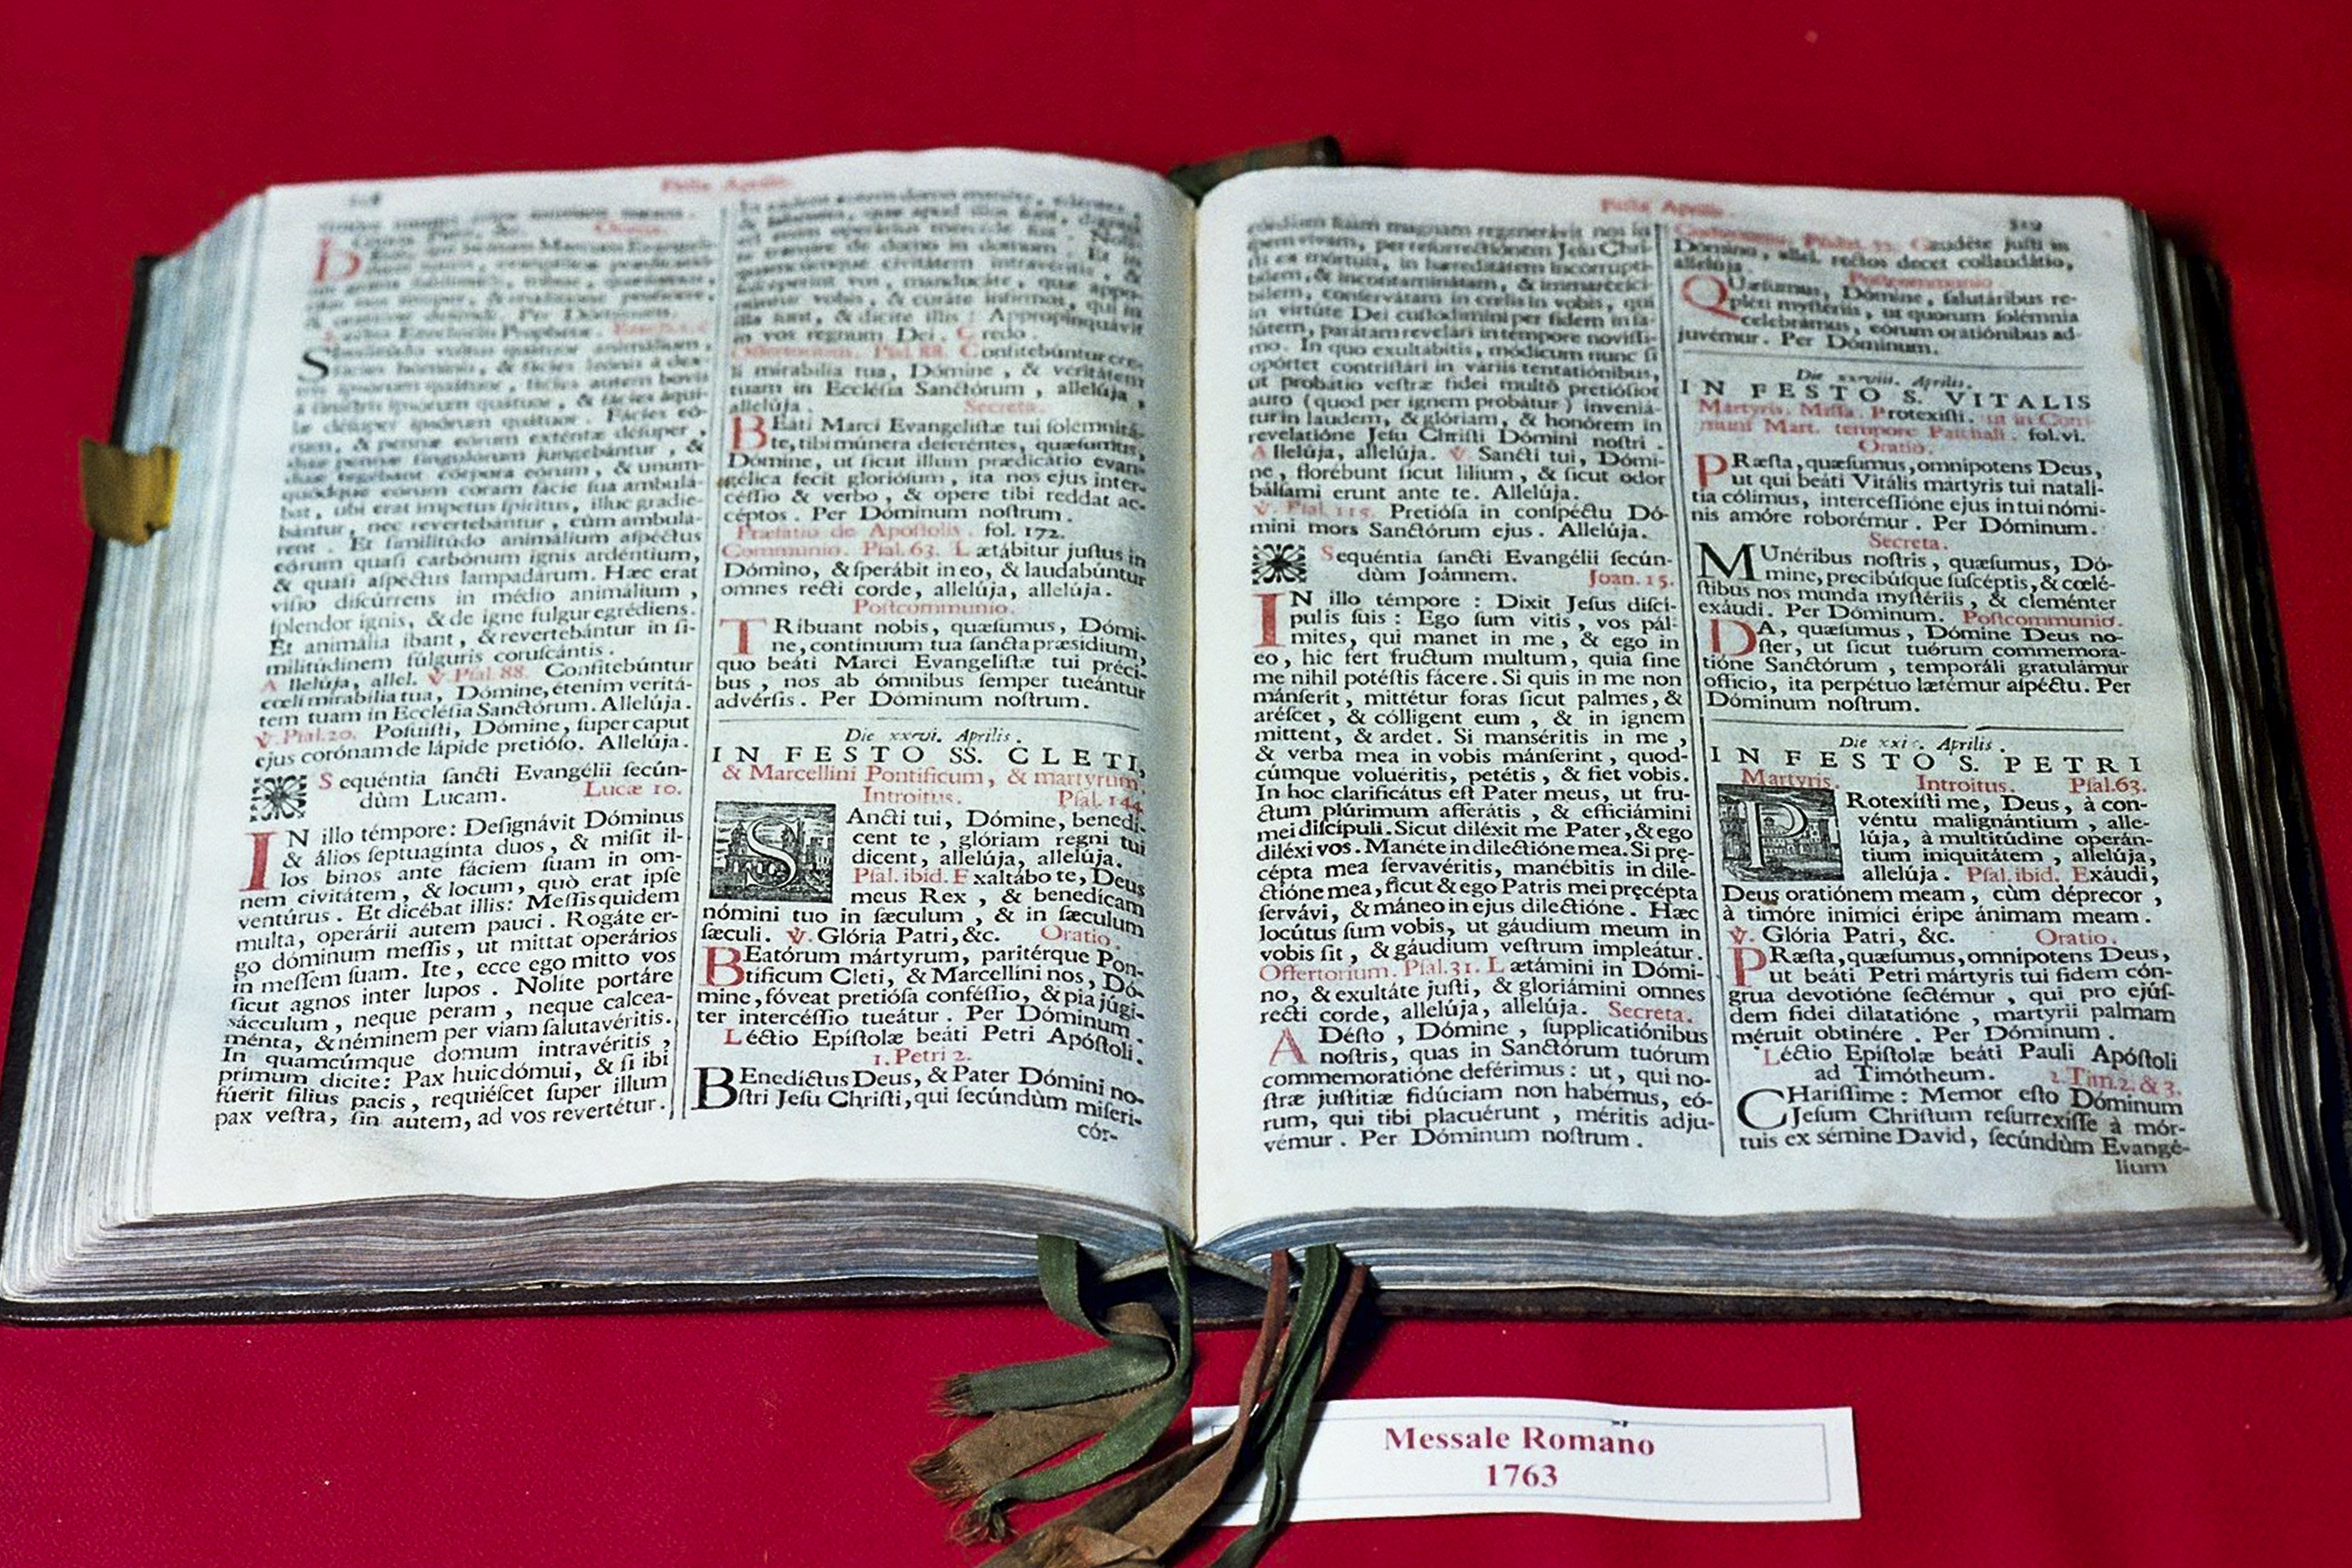 Festa Aprilis.
Oratio.
S
facies hominis, & facies leonis à dex-
tris ipsorum quatuor, facies autem bovis
à sinistris ipsorum quatuor, & facies áqui-
læ désuper ipsórum quátuor. Fácies eó-
rum, & pennæ eórum exténtæ désuper,
duæ pennæ singulórum jungebántur, &
duæ tegébant córpora eórum, & unum-
quódque eórum coram fácie sua ambulá-
bat, ubi erat ímpetus spíritus, illuc gradie-
bántur, nec revertebántur, cùm ambulá-
rent. Et similitúdo animálium aspéctus
eórum quasi carbónum ignis ardéntium,
& quasi aspéctus lampadárum. Hæc erat
vísio discúrrens in médio animálium,
splendor ignis, & de igne fulgur egrédiens.
Et animália ibant, & revertebántur in si-
militúdinem fúlguris coruscántis.
Allelúja, allel. ℣. Psal. 88. Confitebúntur
cœli mirabília tua, Dómine, étenim veritá-
tem tuam in Ecclésia Sanctórum. Allelúja.
℣. Psal. 20. Posuísti, Dómine, super caput
ejus corónam de lápide pretióso. Allelúja.
Sequéntia sancti Evangélii secún-
dùm Lucam. Lucæ 10.
IN illo témpore: Designávit Dóminus
& álios septuaginta duos, & misit il-
los binos ante fáciem suam in om-
nem civitátem, & locum, quò erat ipse
ventúrus. Et dicébat illis: Messis quidem
multa, operárii autem pauci. Rogáte er-
go dóminum messis, ut mittat operários
in messem suam. Ite, ecce ego mitto vos
sicut agnos inter lupos. Nolíte portáre
sácculum, neque peram, neque calcea-
ménta, & néminem per viam salutavéritis.
In quamcúmque domum intravéritis,
primum dícite: Pax huic dómui, & si ibi
fúerit fílius pacis, requiéscet super illum
pax vestra, sin autem, ad vos revertétur.
tráníre de domo in domum. Et in
quamcúmque civitátem intravéritis, &
suscéperint vos, manducáte, quæ appo-
núntur vobis, & curáte infírmos, qui in
illa sunt, & dícite illis: Appropinquávit
in vos regnum Dei. Credo.
Offertorium. Psal. 88. Confitebúntur cœ-
li mirabília tua, Dómine, & veritátem
tuam in Ecclésia Sanctórum, allelúja,
allelúja. Secreta.
BEáti Marci Evangelístæ tui solemnitá-
te, tibi múnera deferéntes, quæsumus,
Dómine, ut sicut illum prædicátio evan-
gélica fecit gloriósum, ita nos ejus inter-
céssio & verbo, & ópere tibi reddat ac-
céptos. Per Dóminum nostrum.
Præfatio de Apostolis. fol. 172.
Communio. Psal. 63. Lætábitur justus in
Dómino, & sperábit in eo, & laudabúntur
omnes recti corde, allelúja, allelúja.
Postcommunio.
TRíbuant nobis, quæsumus, Dómi-
ne, contínuum tua sancta præsídium,
quo beáti Marci Evangelístæ tui préci-
bus, nos ab ómnibus semper tueántur
advérsis. Per Dóminum nostrum.
Die xxvi. Aprilis.
IN FESTO SS. CLETI,
& Marcellini Pontificum, & martyrum.
Introitus. Psal. 144.
SAncti tui, Dómine, benedí-
cent te, glóriam regni tui
dicent, allelúja, allelúja.
Psal. ibid. Exaltábo te, Deus
meus Rex, & benedícam
nómini tuo in sæculum, & in sæculum
sæculi. ℣. Glória Patri, &c. Oratio.
BEatórum mártyrum, paritérque Pon-
tíficum Cleti, & Marcellíni nos, Dó-
mine, fóveat pretiósa conféssio, & pia júgi-
ter intercéssio tueátur. Per Dóminum.
Léctio Epístolæ beáti Petri Apóstoli.
1. Petri 2.
BEnedíctus Deus, & Pater Dómini no-
stri Jesu Christi, qui secúndùm miseri-
cór-
Festa Aprilis. 319
córdiam suam magnam regenerávit nos in
spem vivam, per resurrectiónem Jesu Chri-
sti ex mórtuis, in hæreditátem incorruptí-
bilem, & incontaminátam, & immarcescí-
bilem, conservátam in cœlis in vobis, qui
in virtúte Dei custodímini per fidem in sa-
lútem, parátam revelári in témpore novíssi-
mo. In quo exultábitis, módicum nunc si
opórtet contristári in váriis tentatiónibus,
ut probátio vestræ fídei multò pretiósior
auro (quod per ignem probátur) inveniá-
tur in laudem, & glóriam, & honórem in
revelatióne Jesu Christi Dómini nostri.
Allelúja, allelúja. ℣. Sancti tui, Dómi-
ne, florébunt sicut lílium, & sicut odor
bálsami erunt ante te. Allelúja.
℣. Psal. 115. Pretiósa in conspéctu Dó-
mini mors Sanctórum ejus. Allelúja.
Sequéntia sancti Evangélii secún-
dùm Joánnem. Joan. 15.
IN illo témpore: Dixit Jesus discí-
pulis suis: Ego sum vitis, vos pál-
mites, qui manet in me, & ego in
eo, hic fert fructum multum, quia sine
me nihil potéstis fácere. Si quis in me non
mánserit, mittétur foras sicut palmes, &
aréscet, & cólligent eum, & in ignem
mittent, & ardet. Si manséritis in me,
& verba mea in vobis mánserint, quod-
cúmque voluéritis, petétis, & fiet vobis.
In hoc clarificátus est Pater meus, ut fru-
ctum plúrimum afferátis, & efficiámini
mei discípuli. Sicut diléxit me Pater, & ego
diléxi vos. Manéte in dilectióne mea. Si præ-
cépta mea servavéritis, manébitis in dile-
ctióne mea, sicut & ego Patris mei præcépta
servávi, & máneo in ejus dilectióne. Hæc
locútus sum vobis, ut gáudium meum in
vobis sit, & gáudium vestrum impleátur.
Offertorium. Psal. 31. Lætámini in Dómi-
no, & exultáte justi, & gloriámini omnes
recti corde, allelúja, allelúja. Secreta.
ADésto, Dómine, supplicatiónibus
nostris, quas in Sanctórum tuórum
commemoratióne deférimus: ut, qui no-
stræ justítiæ fidúciam non habémus, eó-
rum, qui tibi placuérunt, méritis adju-
vémur. Per Dóminum nostrum.
Communio. Psal. 32. Gaudéte justi in
Dómino, allel. rectos decet collaudátio,
allelúja. Postcommunio
QUæsumus, Dómine, salutáribus re-
pléti mystériis, ut quorum solémnia
celebrámus, eórum oratiónibus ad-
juvémur. Per Dóminum.
Die xxviii. Aprilis.
IN FESTO S. VITALIS
Martyris. Missa. Protexisti. ut in Com-
muni Mart. tempore Paschali. fol. vi.
Oratio.
PRæsta, quæsumus, omnípotens Deus,
ut qui beáti Vitális mártyris tui natalí-
tia cólimus, intercessióne ejus in tui nómi-
nis amóre roborémur. Per Dóminum.
Secreta.
MUnéribus nostris, quæsumus, Dó-
mine, precibúsque suscéptis, & cœlé-
stibus nos munda mystériis, & cleménter
exáudi. Per Dóminum. Postcommunio.
DA, quæsumus, Dómine Deus no-
ster, ut sicut tuórum commemora-
tióne Sanctórum, temporáli gratulámur
offício, ita perpétuo lætémur aspéctu. Per
Dóminum nostrum.
Die Aprilis.
IN FESTO S. PETRI
Martyris. Introitus. Psal. 63.
PRotexísti me, Deus, à con-
véntu malignántium, alle-
lúja, à multitúdine operán-
tium iniquitátem, allelúja,
allelúja. Psal. ibid. Exáudi,
Deus oratiónem meam, cùm déprecor,
à timóre inimíci éripe ánimam meam.
℣. Glória Patri, &c. Oratio.
PRæsta, quæsumus, omnípotens Deus,
ut beáti Petri mártyris tui fidem cón-
grua devotióne sectémur, qui pro ejús-
dem fídei dilatatióne, martyrii palmam
méruit obtinére. Per Dóminum.
Léctio Epístolæ beáti Pauli Apóstoli
ad Timótheum. 2. Tim. 2. & 3.
CHaríssime: Memor esto Dóminum
Jesum Christum resurrexísse à mór-
tuis ex sémine David, secúndùm Evangé-
lium
Messale Romano
1763